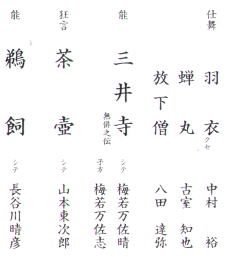 仕舞 羽衣 クセ 中村 裕
蝉丸 古室 知也
放下僧 八田 達弥
能 三井寺 無俳之伝 シテ 梅若万佐晴
子方 梅若万佐志
狂言 茶壺 シテ 山本東次郎
能 鵜飼 シテ 長谷川晴彦